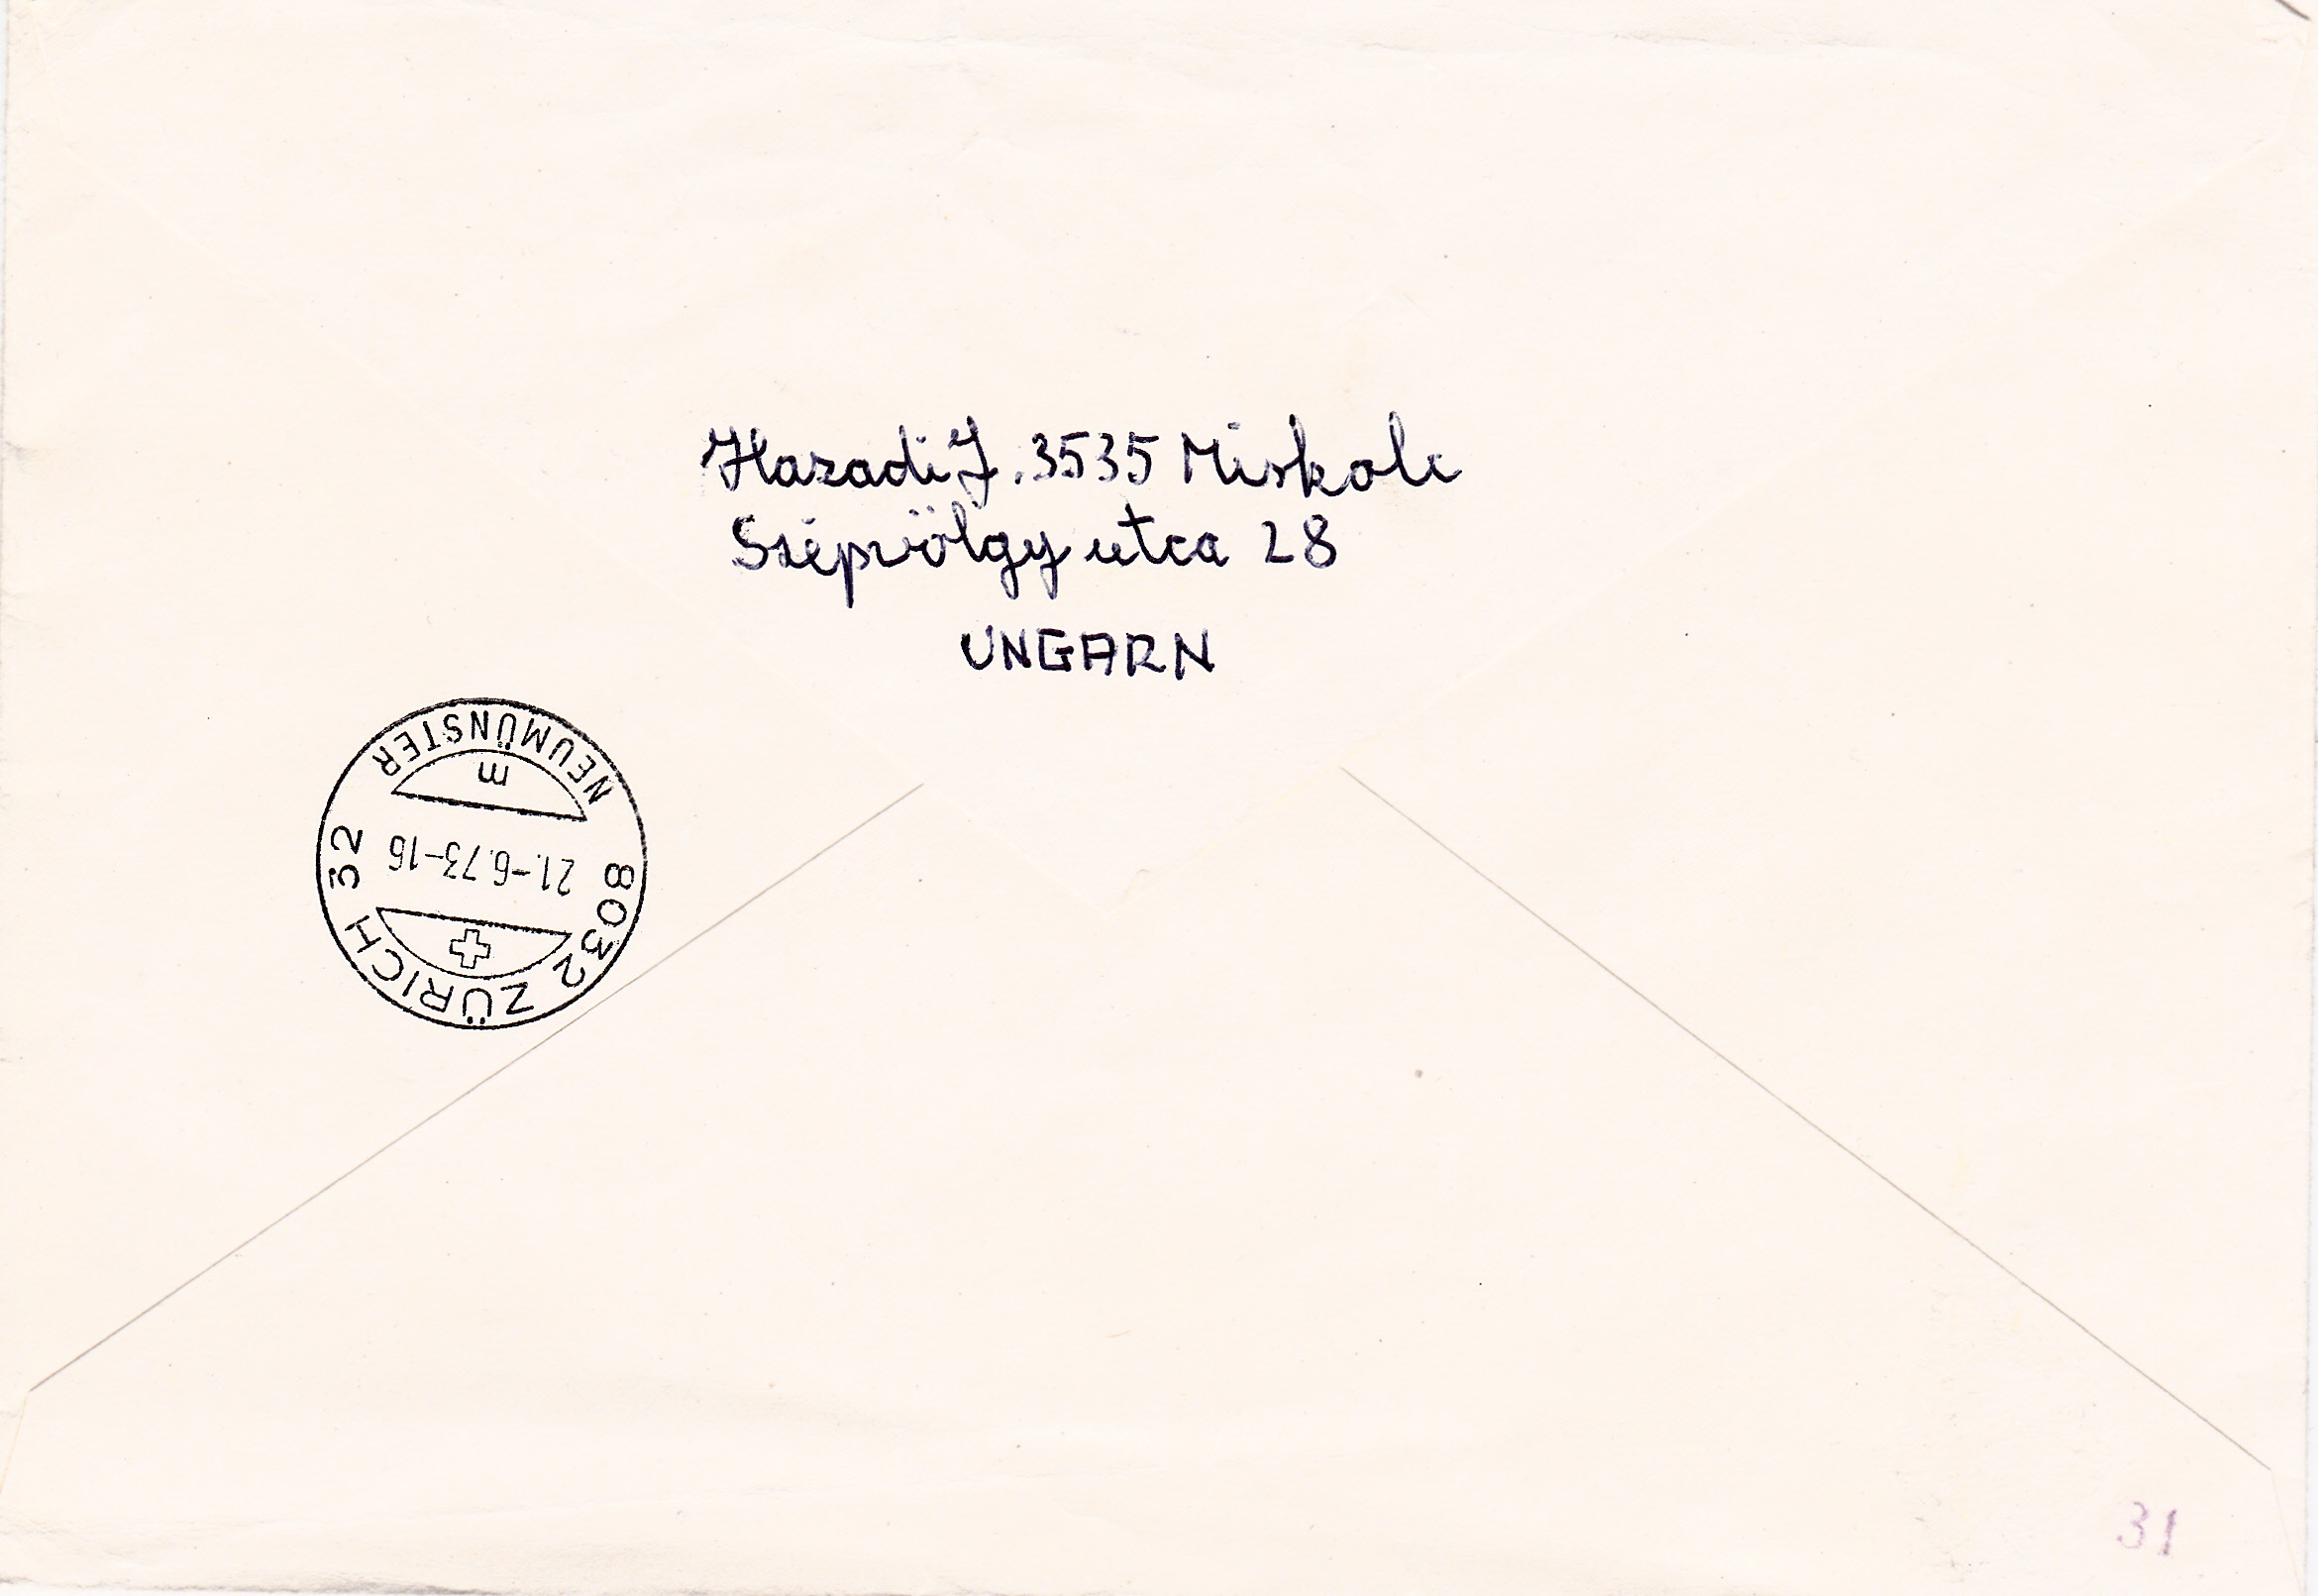 Hazadi J. 3535 Miskolc
Szépvölgy utca 28
UNGARN
NEUMÜNSTER
m
21.-6.73-16
8032 ZÜRICH 32
31